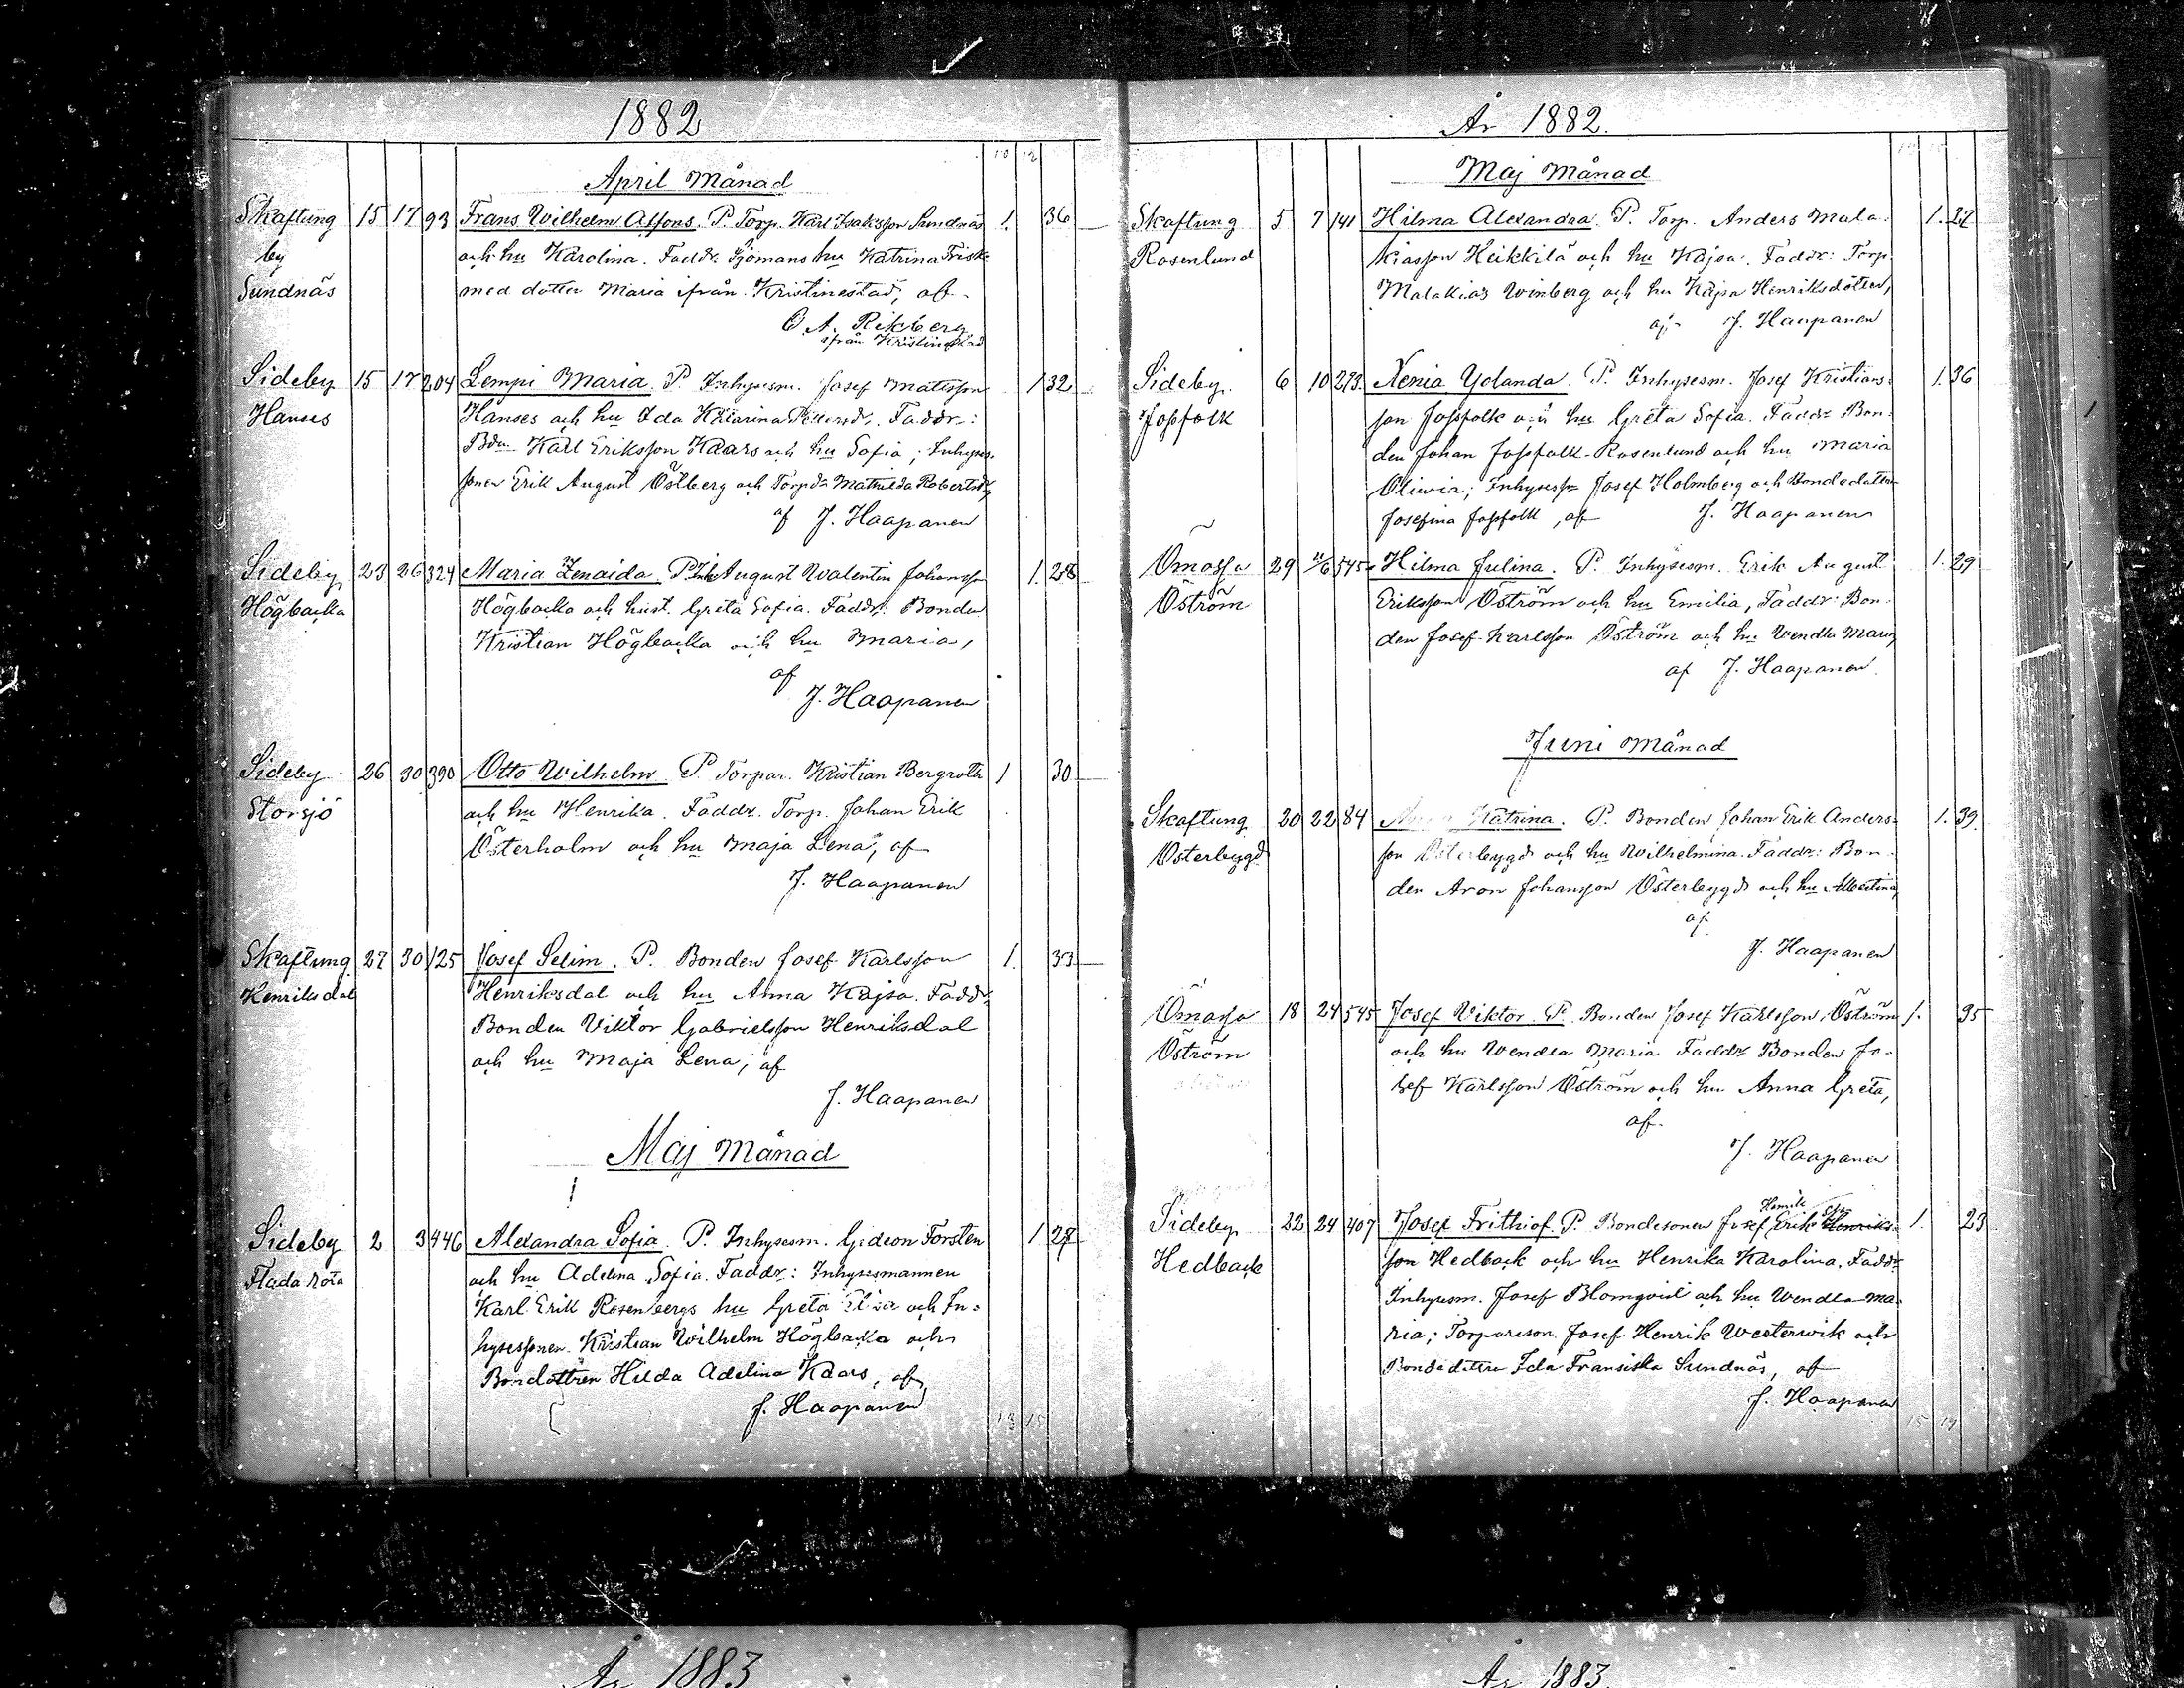 1882
April Månad
Skaftung 15 17 93 Frans Wilhelm Alfons. P. Torp. Karl Isaksson Sundnäs 1. 36
by och hu Karolina. Faddr. Sjömans hu Katrina Frisk
Sundnäs med dotter Maria ifrån Kristinestad, af
O. A. Rikberg
ifrån Kristinestad
Sideby 15 17 204 Lempi Maria. P. Inhysesm. Josef Mattsson 1 32
Hanses Hanses och hu Ida Katarina. Faddr.:
Bdn Karl Eriksson Kaars och hu Sofia; Inhyses-
sonen Erik August Östberg och Torpdr Mathilda Robertsdr
af J. Haapanen
Sideby 23 26 324 Maria Zenaida P. Inh. August Walentin Johansson 1. 28
Högbacka Högbacka och hust. Greta Sofia. Faddr: Bonden
Kristian Högbacka och hu Maria,
af
J. Haapanen
Sideby 26 30 390 Otto Wilhelm. P. Torpar. Kristian Bergroth 1 30
Storsjö och hu Henrika. Faddr. Torp. Johan Erik
Österholm och hu Maja Lena, af
J. Haapanen
Skaftung 27 30 125 Josef Selim. P. Bonden Josef Karlsson 1. 33
Henriksdal Henriksdal och hu Anna Kajsa. Faddr
Bonden Viktor Gabrielsson Henriksdal
och hu Maja Lena, af
J. Haapanen
Maj Månad
Sideby 2 3 446 Alexandra Sofia. P. Inhysesm. Gideon Forsten 1 27
Flada rota och hu Adelina Sofia. Faddr: Inhysesmannen
Karl Erik Rosenbergs hu Greta och In-
hysessonen Kristian Wilhelm Högbacka och
Bondottren Hilda Adelina Kaars, af
J. Haapanen
År 1882.
Maj Månad
Skaftung 5 7 141 Hilma Alexandra. P. Torp. Anders Mala- 1. 27
Rosenlund kiasson Heikkilä och hu Kajsa. Faddr: Torp.
Malakias Winberg och hu Kajsa Henriksdotter,
af J. Haapanen
Sideby 6 10 273 Xenia Yolanda. P. Inhysesm. Josef Kristians- 1. 36
Jossfolk son Jossfolk och hu Greta Sofia. Faddr Bon-
den Johan Jossfolk-Rosenlund och hu Maria
Oliwia; Inhysess. Josef Holmberg och Bondedottern
Josefina Jossfolk, af J. Haapanen
Ömossa 29 11/6 545 Hilma Julina. P. Inhysesm. Erik August 1. 29
Öström Eriksson Öström och hu Emilia, Faddr: Bon-
den Josef Karlsson Öström och hu Wendla Maria,
af J. Haapanen
Juni Månad
Skaftung 20 22 84 Katrina. P. Bonden Johan Erik Anders- 1. 39
Österbygd son Österbygd och hu Wilhelmina. Faddr: Bon-
den Aron Johansson Österbygd och hu Albertina,
af
J. Haapanen
Ömossa 18 24 545 Josef Viktor. P. Bonden Josef Karlsson Öström 1. 35
Öström och hu Wendla Maria Faddr Bonden Jo-
sef Karlsson Öström och hu Anna Greta,
af
J. Haapanen
Sideby 22 24 407 Josef Frithiof. P. Bondesonen Josef Erik Henriks- 1. 23
Henrik
Hedback son Hedback och hu Henrika Karolina. Faddr
Inhysesm. Josef Blomqvist och hu Wendla Ma-
ria; Torpareson. Josef Henrik Westerwik och
Bondedottren Ida Fransiska Sundnäs, af
J. Haapanen
År 1883
År 1883.